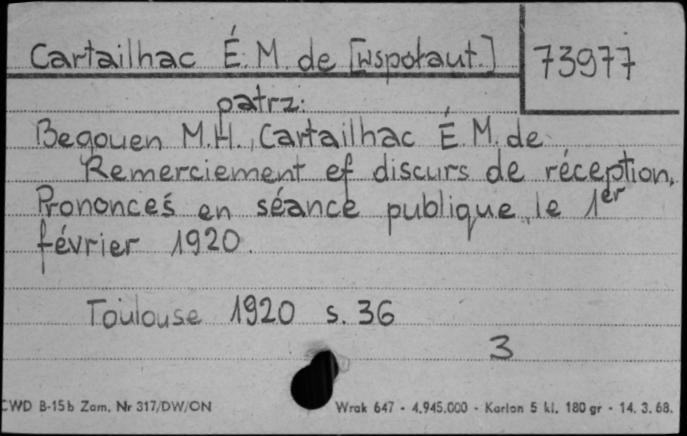 Cartailhac É. M. de [wspołaut.] 73977
patrz:
Begouen M.H., Cartailhac É M. de
Remerciement et discurs de réception,
Prononceś en séance publique, le 1er
février 1920.
Toulouse 1920 s. 36
3
CWD B-15b Zam. Nr 317/DW/ON Wrak 647 - 4.945.000 - Karton 5 kl. 180 gr - 14. 3. 68.